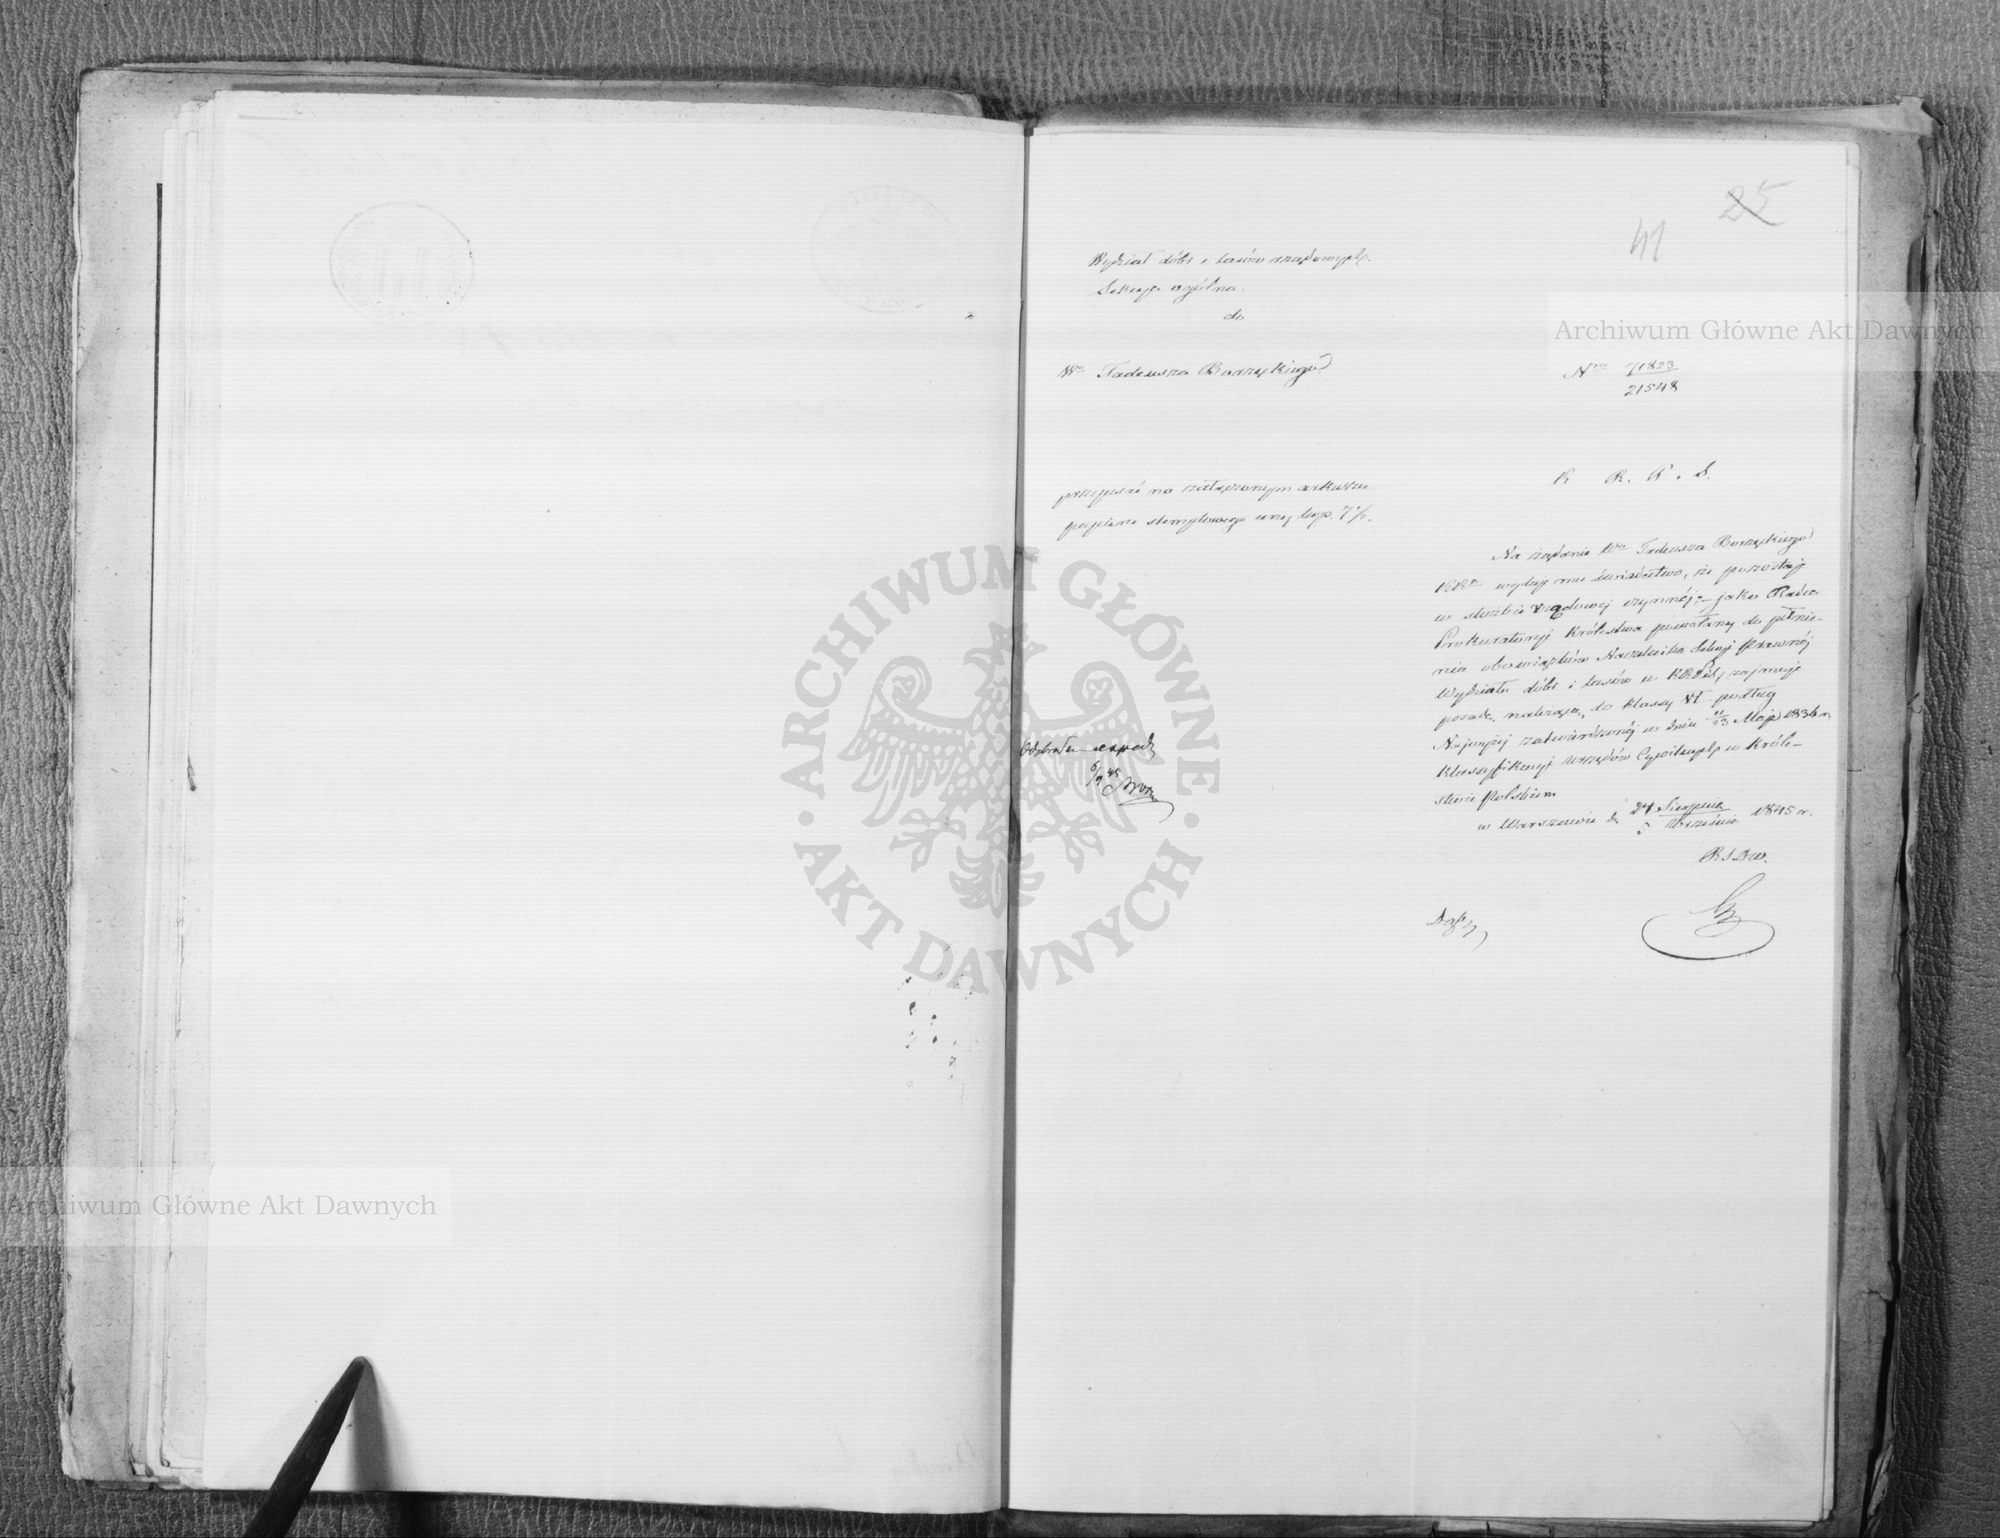 25
41
Wydział dóbr i lasów rządowych.
Sekcya ogólna.
do
Wo Tadeusza Borzęckiego
Nro 71823
21548
przepisać na załączonym arkuszu
papieru stemplowego ceny kop. 7½.
K R. P. i S.
Na żądanie Wo Tadeusza Borzęckiego
wydaje mu świadectwo, że pozostaje
w służbie rządowej czynnéj, jako Radca
Prokuratoryi Królestwa powołany do pełnie-
nia obowiązków Naczelnika Sekcyi Prawnéj
Wydziału dóbr i lasów w KRPiS, zajmuje
posadę należącą do klassy VI podług
Najwyżéj zatwierdzonéj w dniu 11/23 Maja 1836 r.
Klassyfikacyi Urzędów Cywilnych w Króle-
stwie Polskiem
w Warszawie d. 24 Sierpnia
5 Września 1845 r.
Odebrałem
6/9 45
Archiwum Główne Akt Dawnych
Archiwum Główne Akt Dawnych
ARCHIWUM GŁÓWNE
AKT DAWNYCH